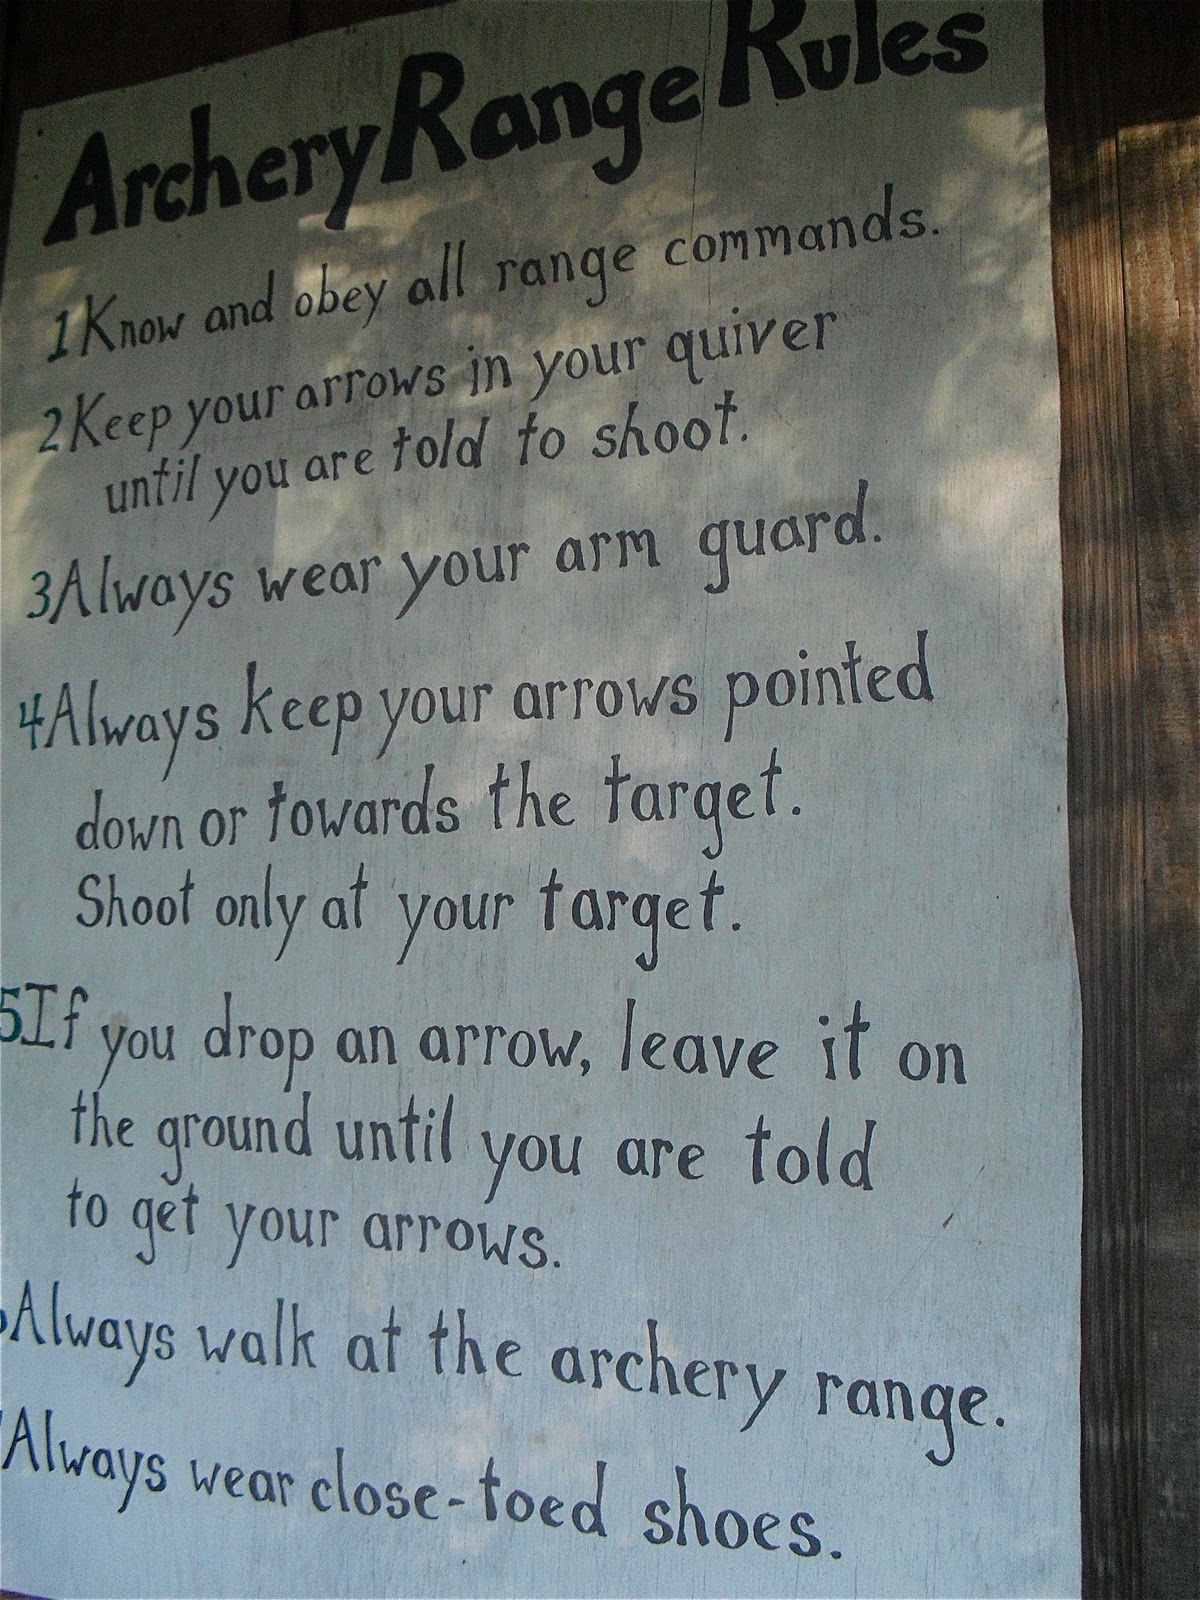 Archery Range Rules
1 Know and obey all range commands.
2 Keep your arrows in your quiver
until you are told to shoot.
3 Always wear your arm guard.
4 Always keep your arrows pointed
down or towards the target.
Shoot only at your target.
5 If you drop an arrow, leave it on
the ground until you are told
to get your arrows.
Always walk at the archery range.
Always wear close-toed shoes.